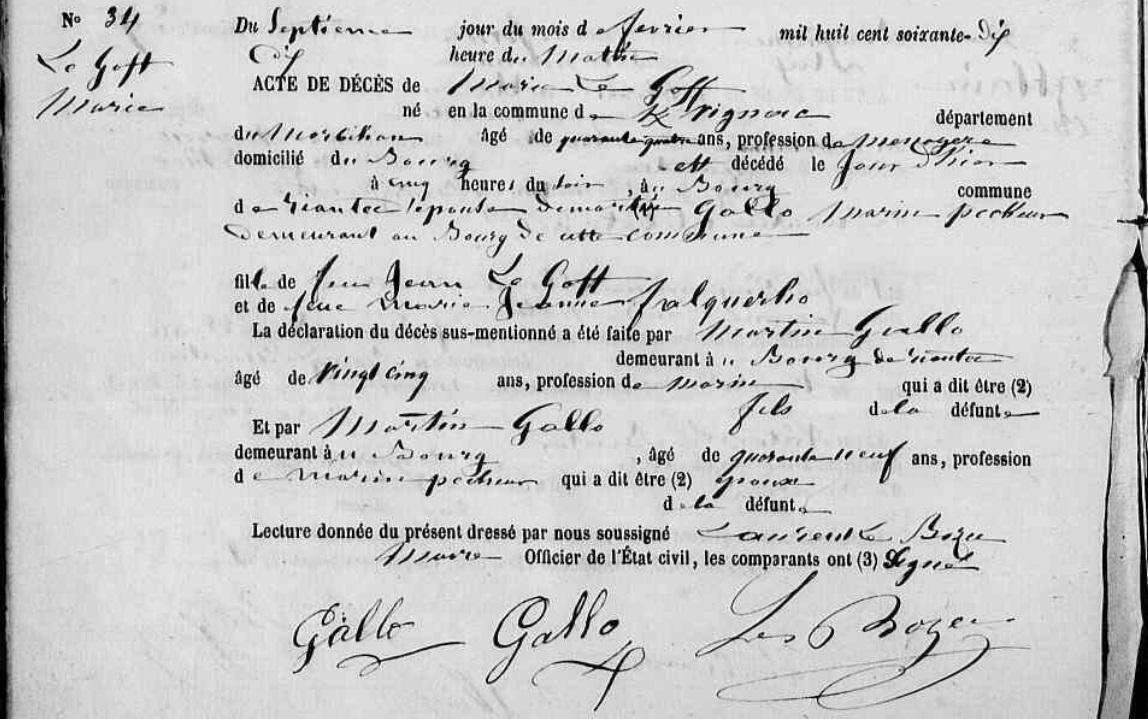 No 34
Le Goff
Marie
Du Septieme jour du mois de fevrier mil huit cent soixante-dix
Dix heure du Matin
ACTE DE DÉCÈS de Marie Le Goff
né en la commune de Kvignac département
du Morbihan âgé de quarante quatre ans, profession de menagere
domicilié du Bourg est décédé le Jour d'hier
à cinq heures du soir, au Bourg commune
de riantec épouse de martin Gallo Marin pecheur
demeurant au Bourg de cette commune
fille de feu Jean Le Goff
et de feue marie Jeanne
La déclaration du décès sus-mentionné a été faite par Martin Gallo
demeurant à u Bourg de riantec
âgé de Vingt cinq ans, profession de marin qui a dit être (2)
fils de la défunte
Et par Martin Gallo
demeurant à u Bourg, âgé de quarante neuf ans, profession
de marin pecheur qui a dit être (2) epoux
de la défunte
Lecture donnée du présent dressé par nous soussigné Laurent Le
Maire Officier de l'État civil, les comparants ont (3) Signé
Gallo Gallo